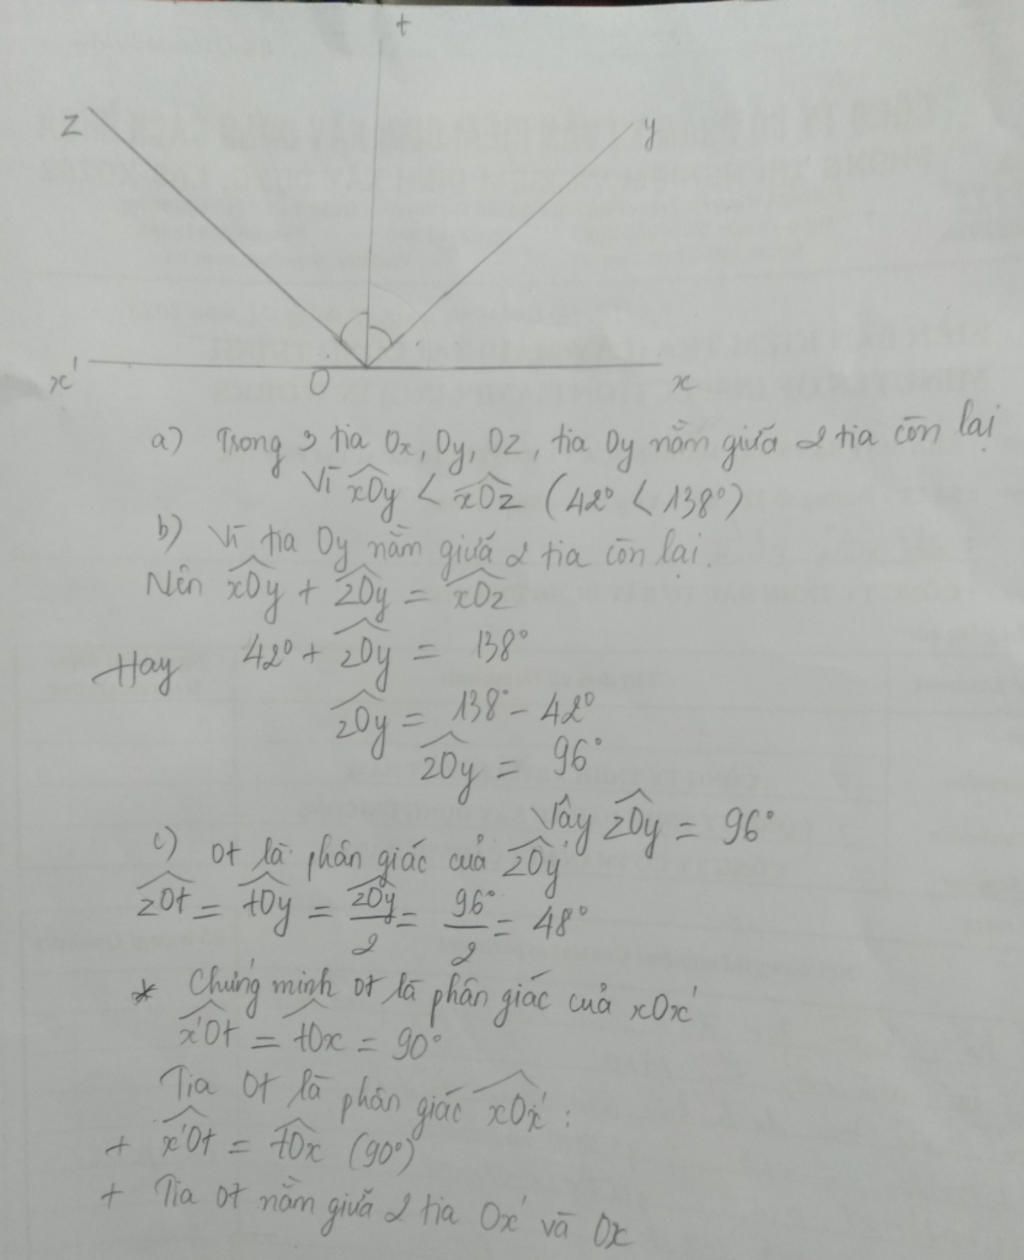 t
z
y
x'
O
x
a) Trong 3 tia Ox, Oy, Oz, tia Oy nằm giữa 2 tia còn lại
Vì xOy < xOz (42° < 138°)
b) Vì tia Oy nằm giữa 2 tia còn lại.
Nên xOy + zOy = xOz
Hay 42° + zOy = 138°
zOy = 138° - 42°
zOy = 96°
Vậy zOy = 96°
c) Ot là phân giác của zOy
zOt = tOy = zOy/2 = 96°/2 = 48°
* Chứng minh Ot là phân giác của xOx'
x'Ot = tOx = 90°
Tia Ot là phân giác xOx' :
+ x'Ot = tOx (90°)
+ Tia Ot nằm giữa 2 tia Ox' và Ox